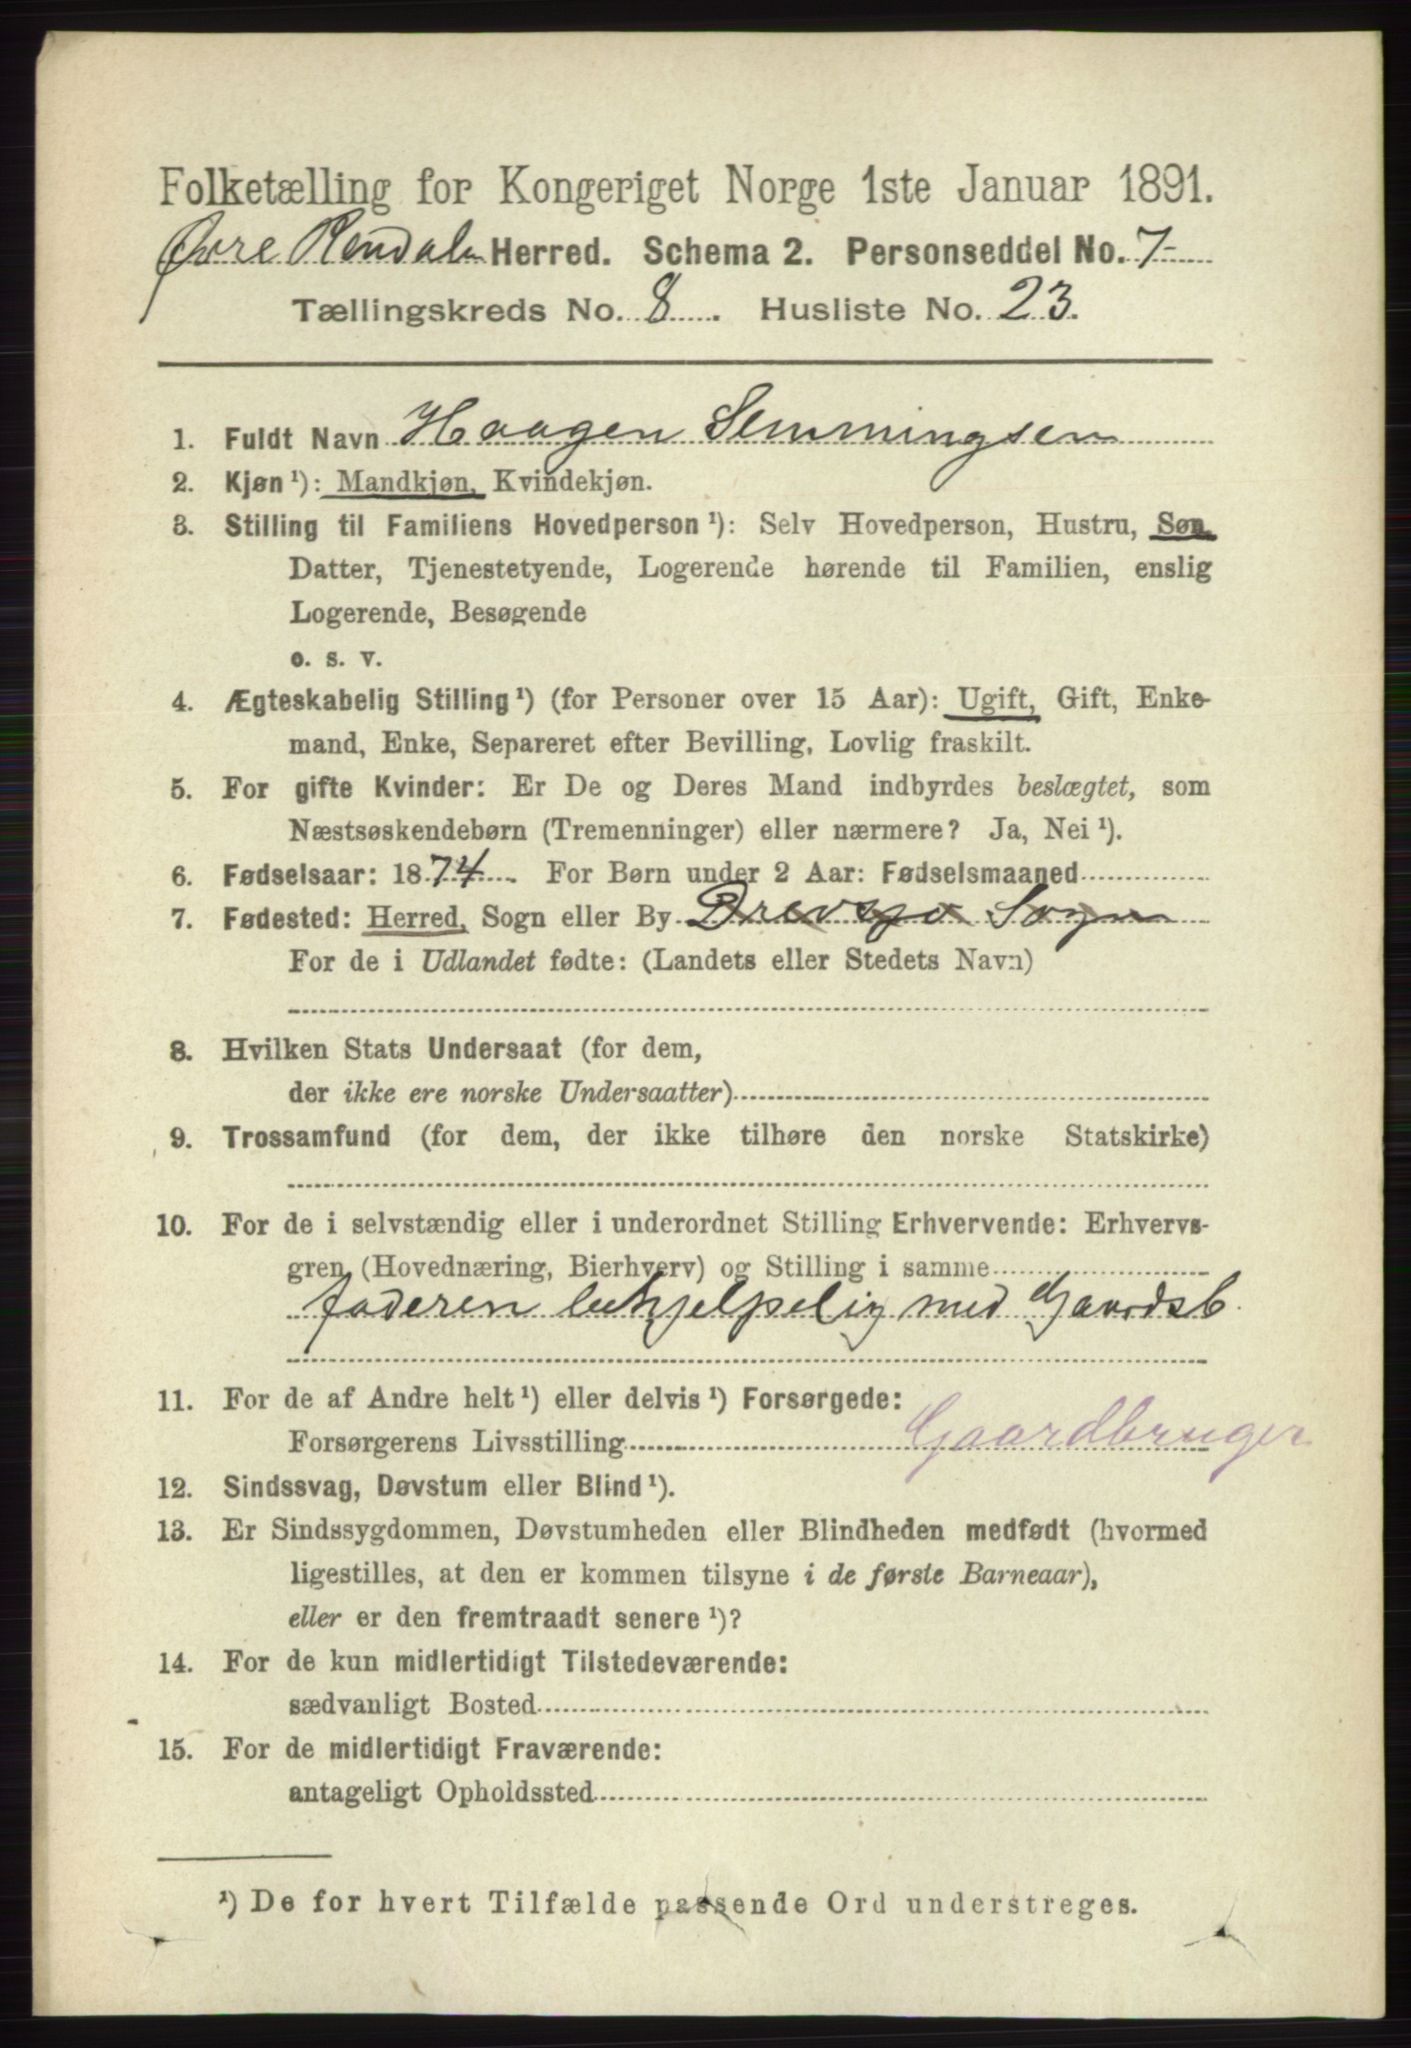 Folketælling for Kongeriget Norge 1ste Januar 1891.
Øvre Rendalen Herred. Schema 2. Personseddel No. 7
Tællingskreds No. 8. Husliste No. 23.
1. Fuldt Navn Haagen Semmingsen
2. Kjøn ¹): Mandkjøn, Kvindekjøn.
3. Stilling til Familiens Hovedperson ¹): Selv Hovedperson, Hustru, Søn,
Datter, Tjenestetyende, Logerende hørende til Familien, enslig
Logerende, Besøgende
o. s. v.
4. Ægteskabelig Stilling ¹) (for Personer over 15 Aar): Ugift, Gift, Enke-
mand, Enke, Separeret efter Bevilling, Lovlig fraskilt.
5. For gifte Kvinder: Er De og Deres Mand indbyrdes beslægtet, som
Næstsøskendebørn (Tremenninger) eller nærmere? Ja, Nei ¹).
6. Fødselsaar: 1874. For Børn under 2 Aar: Fødselsmaaned
7. Fødested: Herred, Sogn eller By Drevsjø Sogn
For de i Udlandet fødte: (Landets eller Stedets Navn)
8. Hvilken Stats Undersaat (for dem,
der ikke ere norske Undersaatter)
9. Trossamfund (for dem, der ikke tilhøre den norske Statskirke)
10. For de i selvstændig eller i underordnet Stilling Erhvervende: Erhvervs-
gren (Hovednæring, Bierhverv) og Stilling i samme
faderen behjelpelig med Gaardsb.
11. For de af Andre helt ¹) eller delvis ¹) Forsørgede:
Forsørgerens Livsstilling Gaardbruger
12. Sindssvag, Døvstum eller Blind ¹).
13. Er Sindssygdommen, Døvstumheden eller Blindheden medfødt (hvormed
ligestilles, at den er kommen tilsyne i de første Barneaar),
eller er den fremtraadt senere ¹)?
14. For de kun midlertidigt Tilstedeværende:
sædvanligt Bosted
15. For de midlertidigt Fraværende:
antageligt Opholdssted
¹) De for hvert Tilfælde passende Ord understreges.